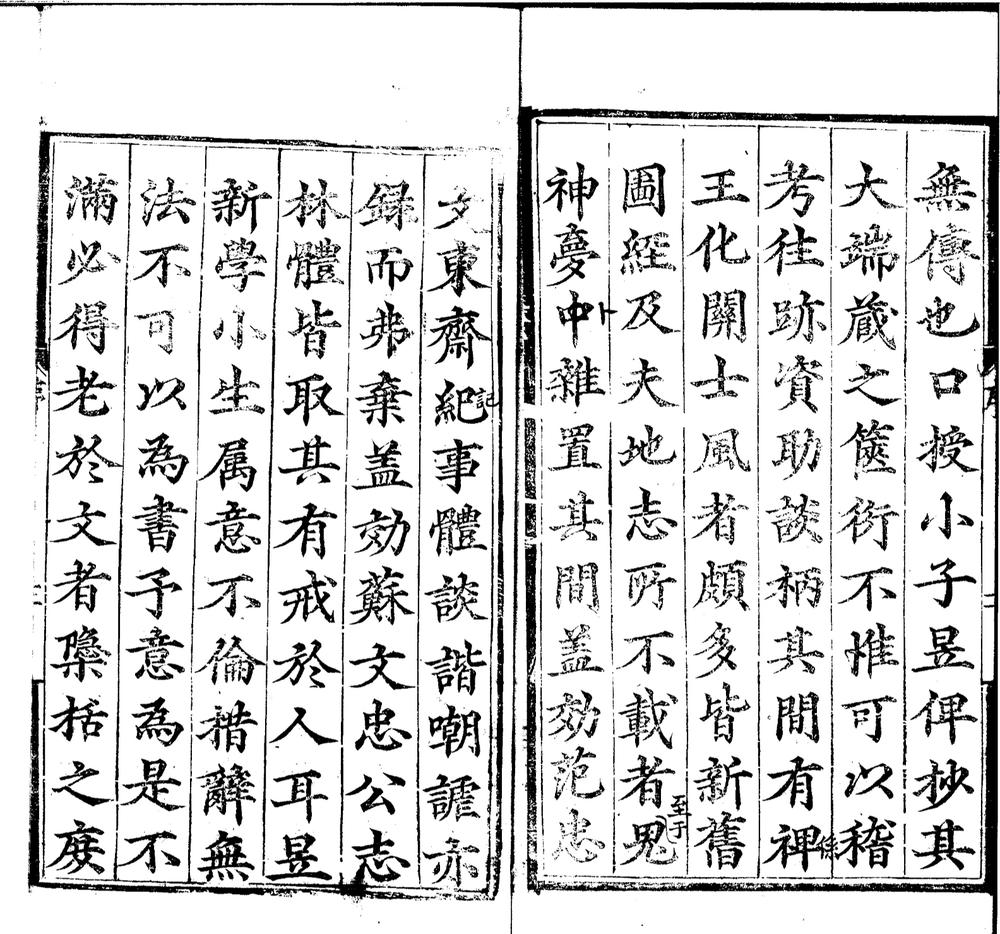 無傳也口授小子昱俾抄其
大端蔵之篋衍不惟可以稽
考往跡資助談柄其間有裨
王化關士風者頗多皆新舊
圖經及夫地志所不載者至于鬼
神夢卜中雜置其間盖效范忠
文東齋紀記事體談諧嘲謔亦
録而弗棄盖効蘇文忠公志
林體皆取其有戒於人耳昱
新學小生属意不倫措辭無
法不可以為書予意為是不
滿必得老於文者櫽括之庶